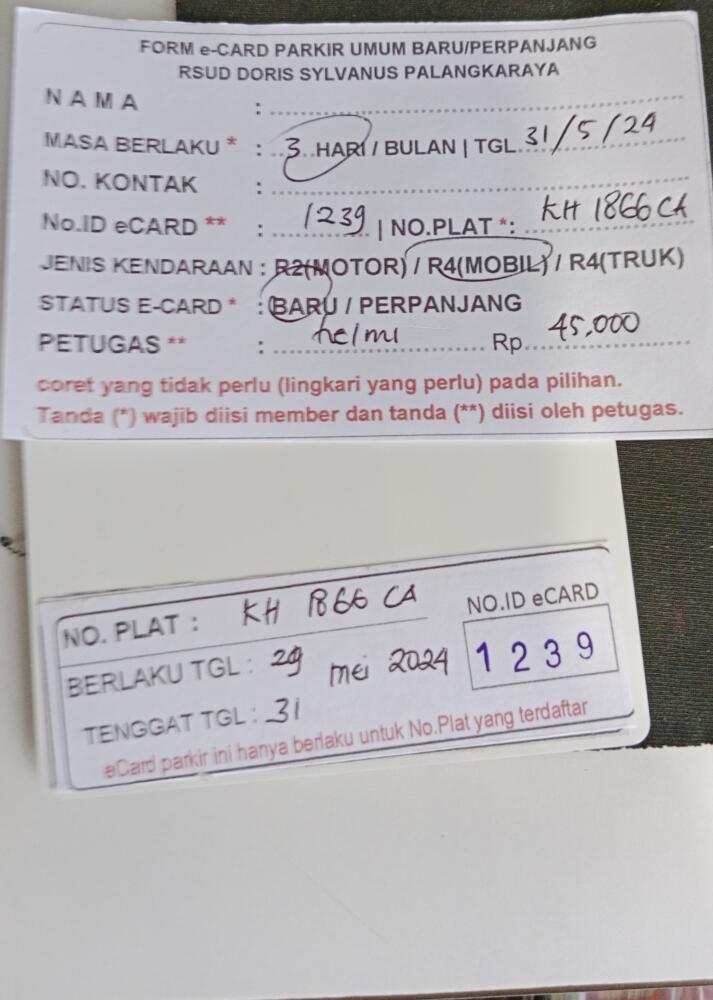 FORM e-CARD PARKIR UMUM BARU/PERPANJANG
RSUD DORIS SYLVANUS PALANGKARAYA
NAMA :
MASA BERLAKU * : 3 HARI / BULAN | TGL 31/5/24
NO. KONTAK :
No.ID eCARD ** : 1239 | NO.PLAT *: KH 1866 CA
JENIS KENDARAAN : R2(MOTOR) / R4(MOBIL) / R4(TRUK)
STATUS E-CARD * : BARU / PERPANJANG
PETUGAS ** : helmi Rp. 45.000
coret yang tidak perlu (lingkari yang perlu) pada pilihan.
Tanda (*) wajib diisi member dan tanda (**) diisi oleh petugas.
NO. PLAT : KH 1866 CA
NO.ID eCARD
BERLAKU TGL : 29 mei 2024
1239
TENGGAT TGL : 31
eCard parkir ini hanya berlaku untuk No.Plat yang terdaftar